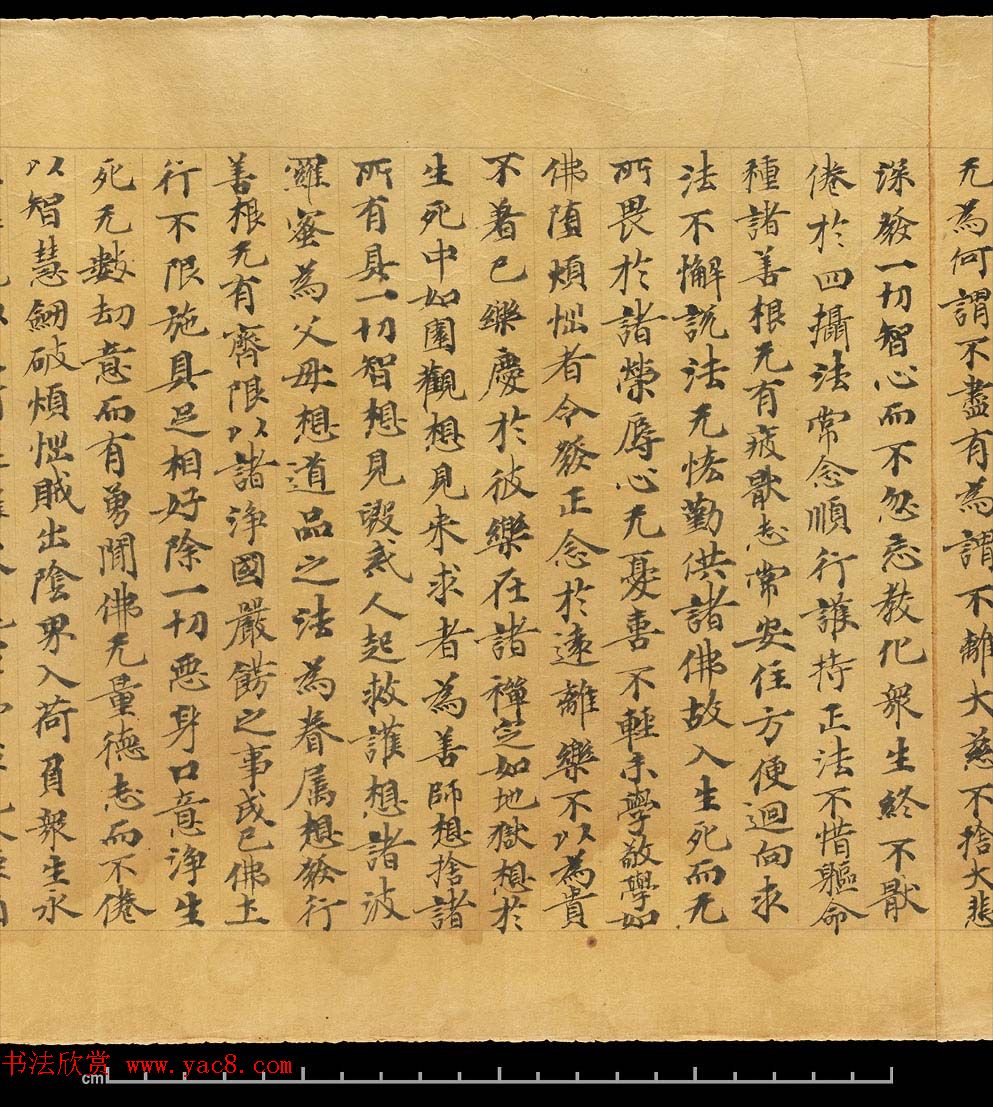 无為何謂不盡有為謂不離大慈不捨大悲
深發一切智心而不忽忘教化衆生終不猒
倦於四攝法常念順行護持正法不惜軀命
種諸善根无有疲猒志常安住方便迴向求
法不懈說法无悋勤供諸佛故入生死而无
所畏於諸榮辱心无憂喜不輕未學敬學如
佛堕煩惱者令發正念於遠離樂不以為貴
不著已樂慶於彼樂在諸禪定如地獄想於
生死中如園觀想見来求者為善師想捨諸
所有具一切智想見毀戒人起救護想諸波
羅蜜為父母想道品之法為眷属想發行
善根无有齊限以諸淨國嚴餝之事成已佛土
行不限施具足相好除一切惡身口意淨生
死无數劫意而有勇聞佛无量德志而不倦
以智慧劒破煩惱賊出陰界入荷負衆生永
书法欣赏 www.yac8.com
cm